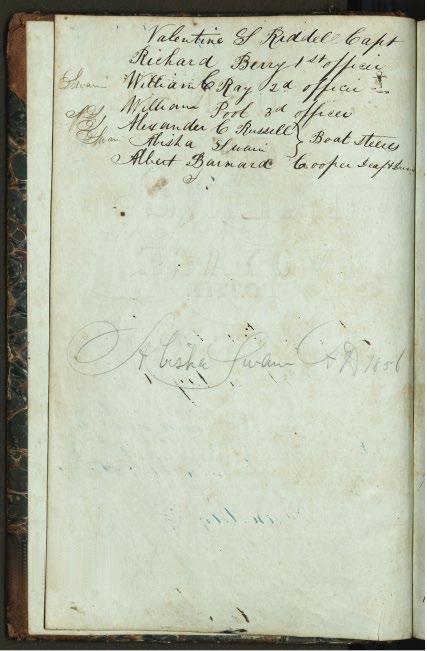 Valentine S Riddell Capt
Richard Berry 1st officer
Swain William C Ray 2d officer
William Pool 3d officer
Alexander C Russell } Boat steers
Swain Abisha Swain
Albert Barnard Cooper Deaf & Dum
Abisha Swain AD 1856